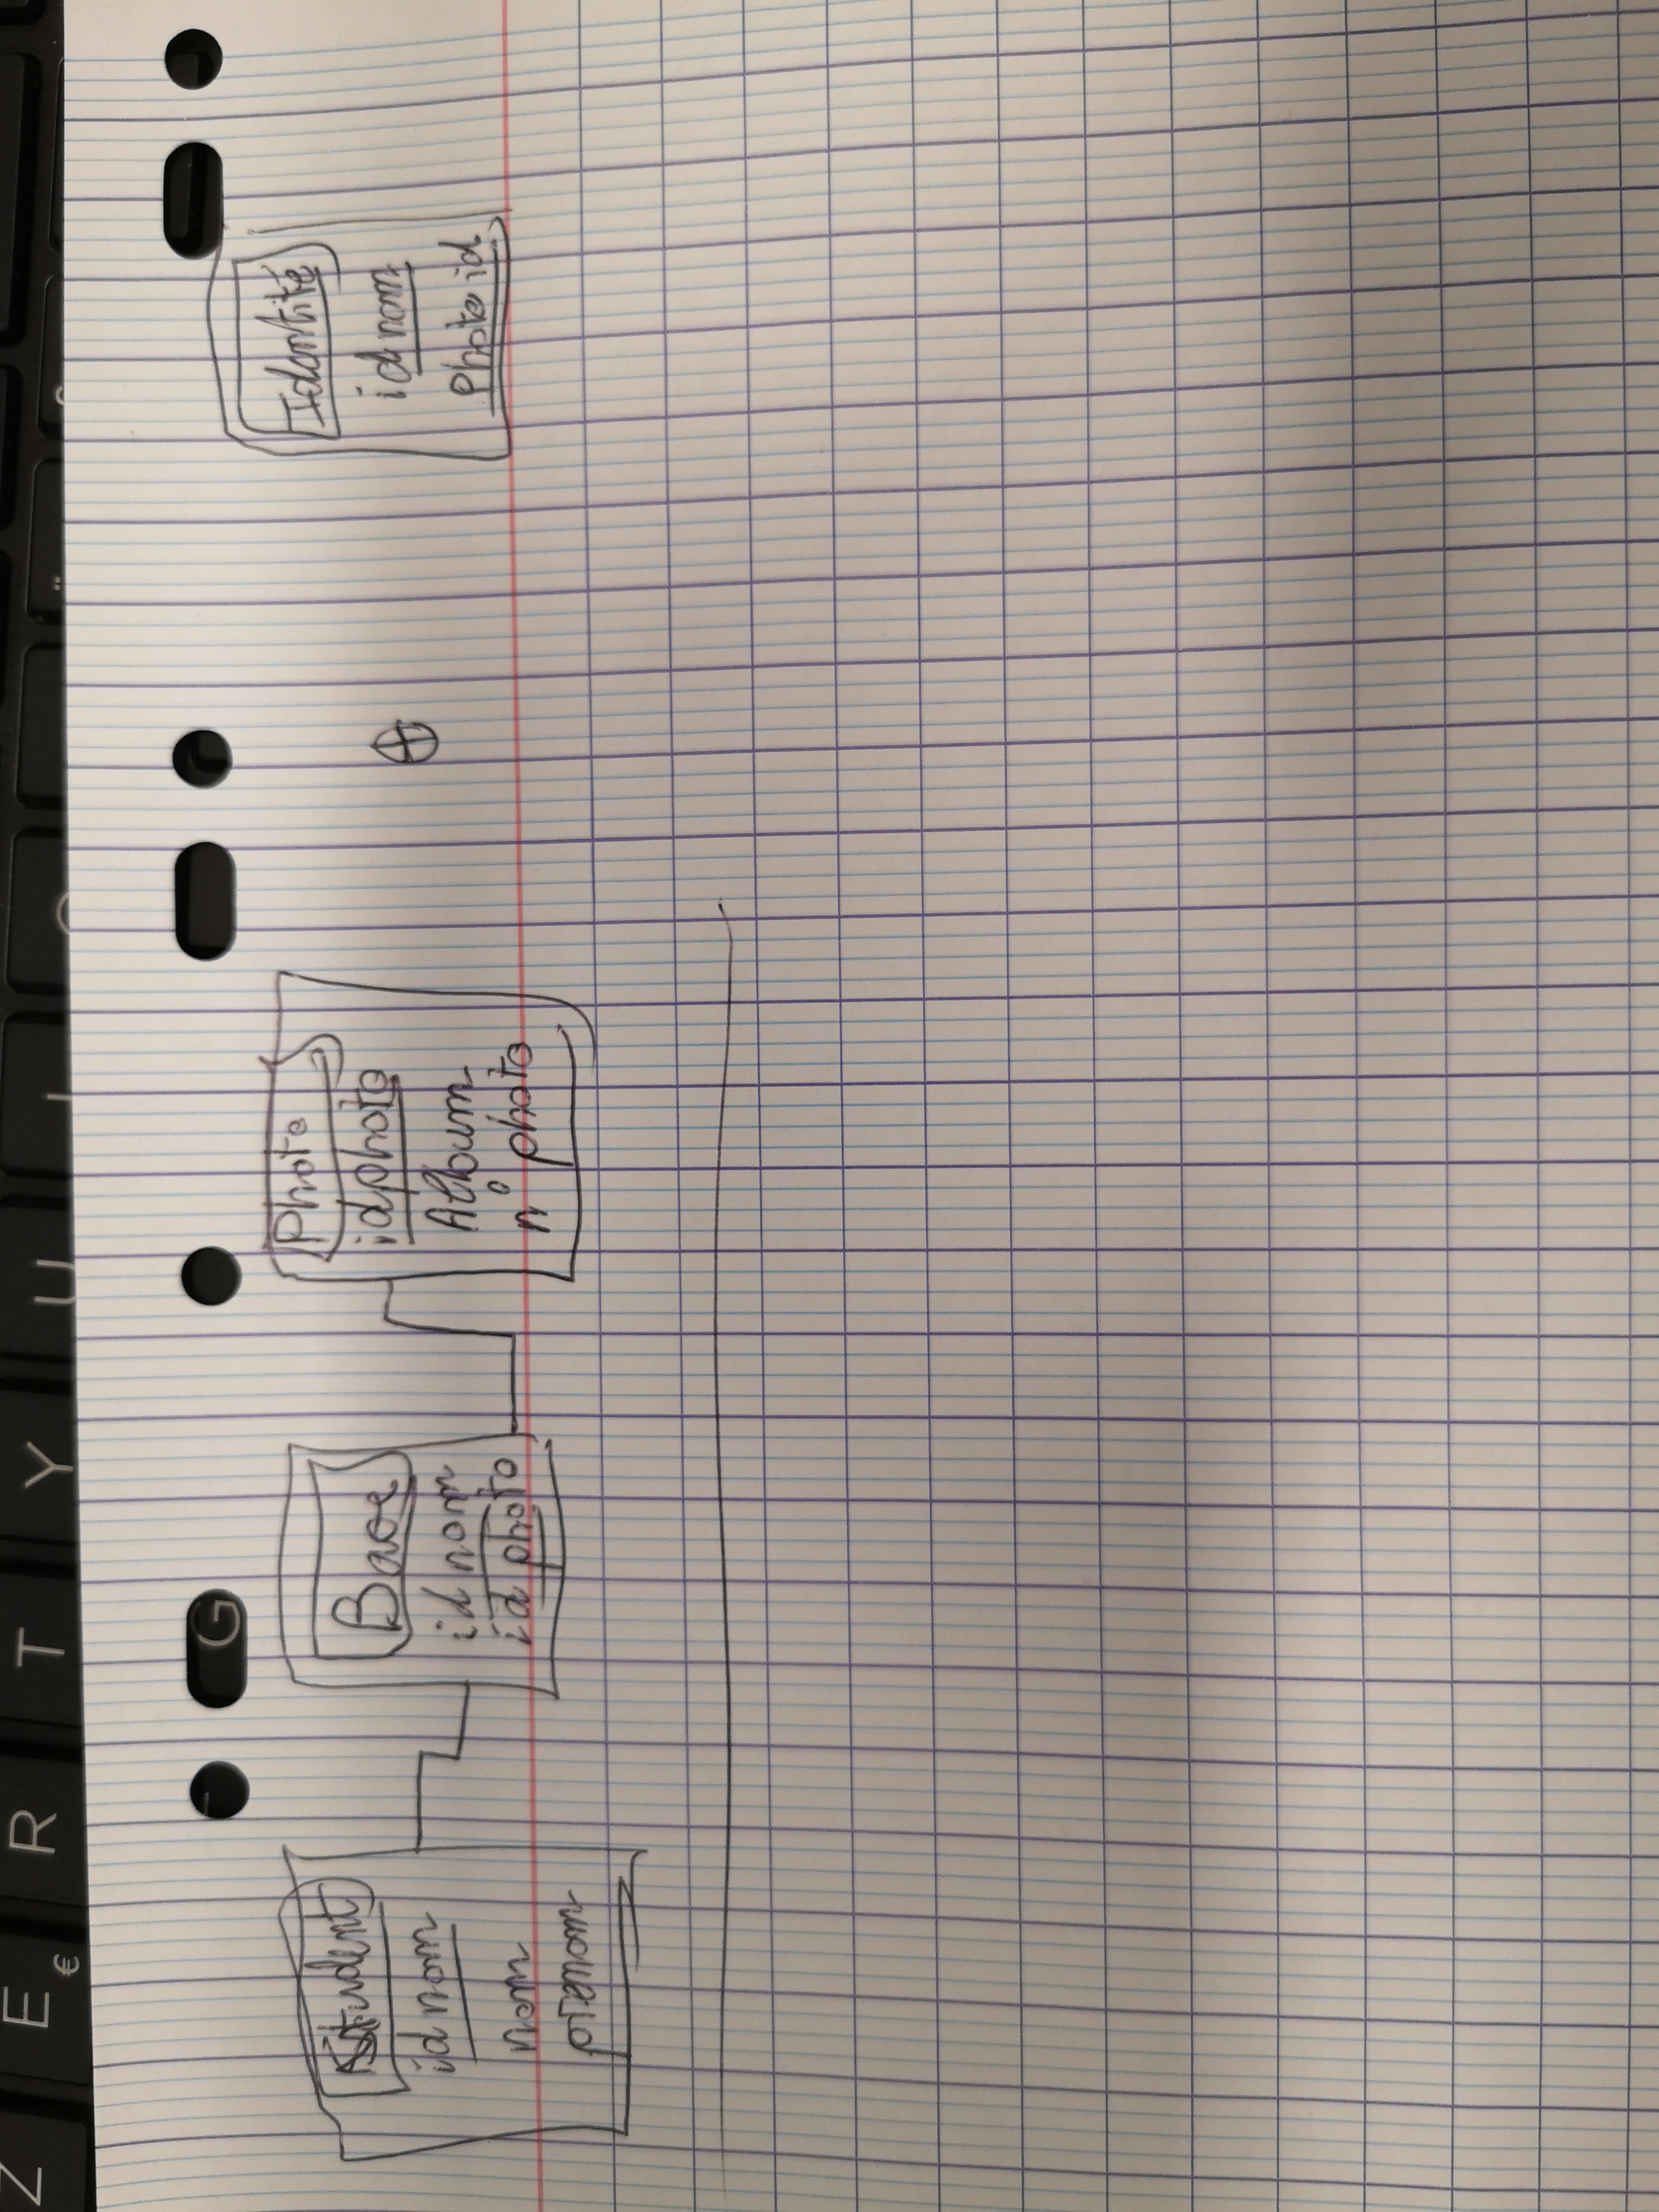 Student
id nom
nom
prenom
Base
id nom
id photo
Photo
idphoto
Album
n° photo
⊕
Idantité
idnom
Photo id
Z
E €
R
T
G
Y
U